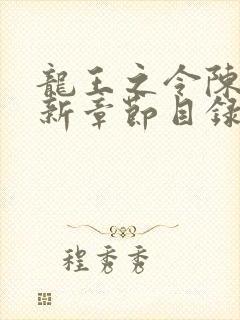 龍王之令陳
新章節目錄
程秀秀